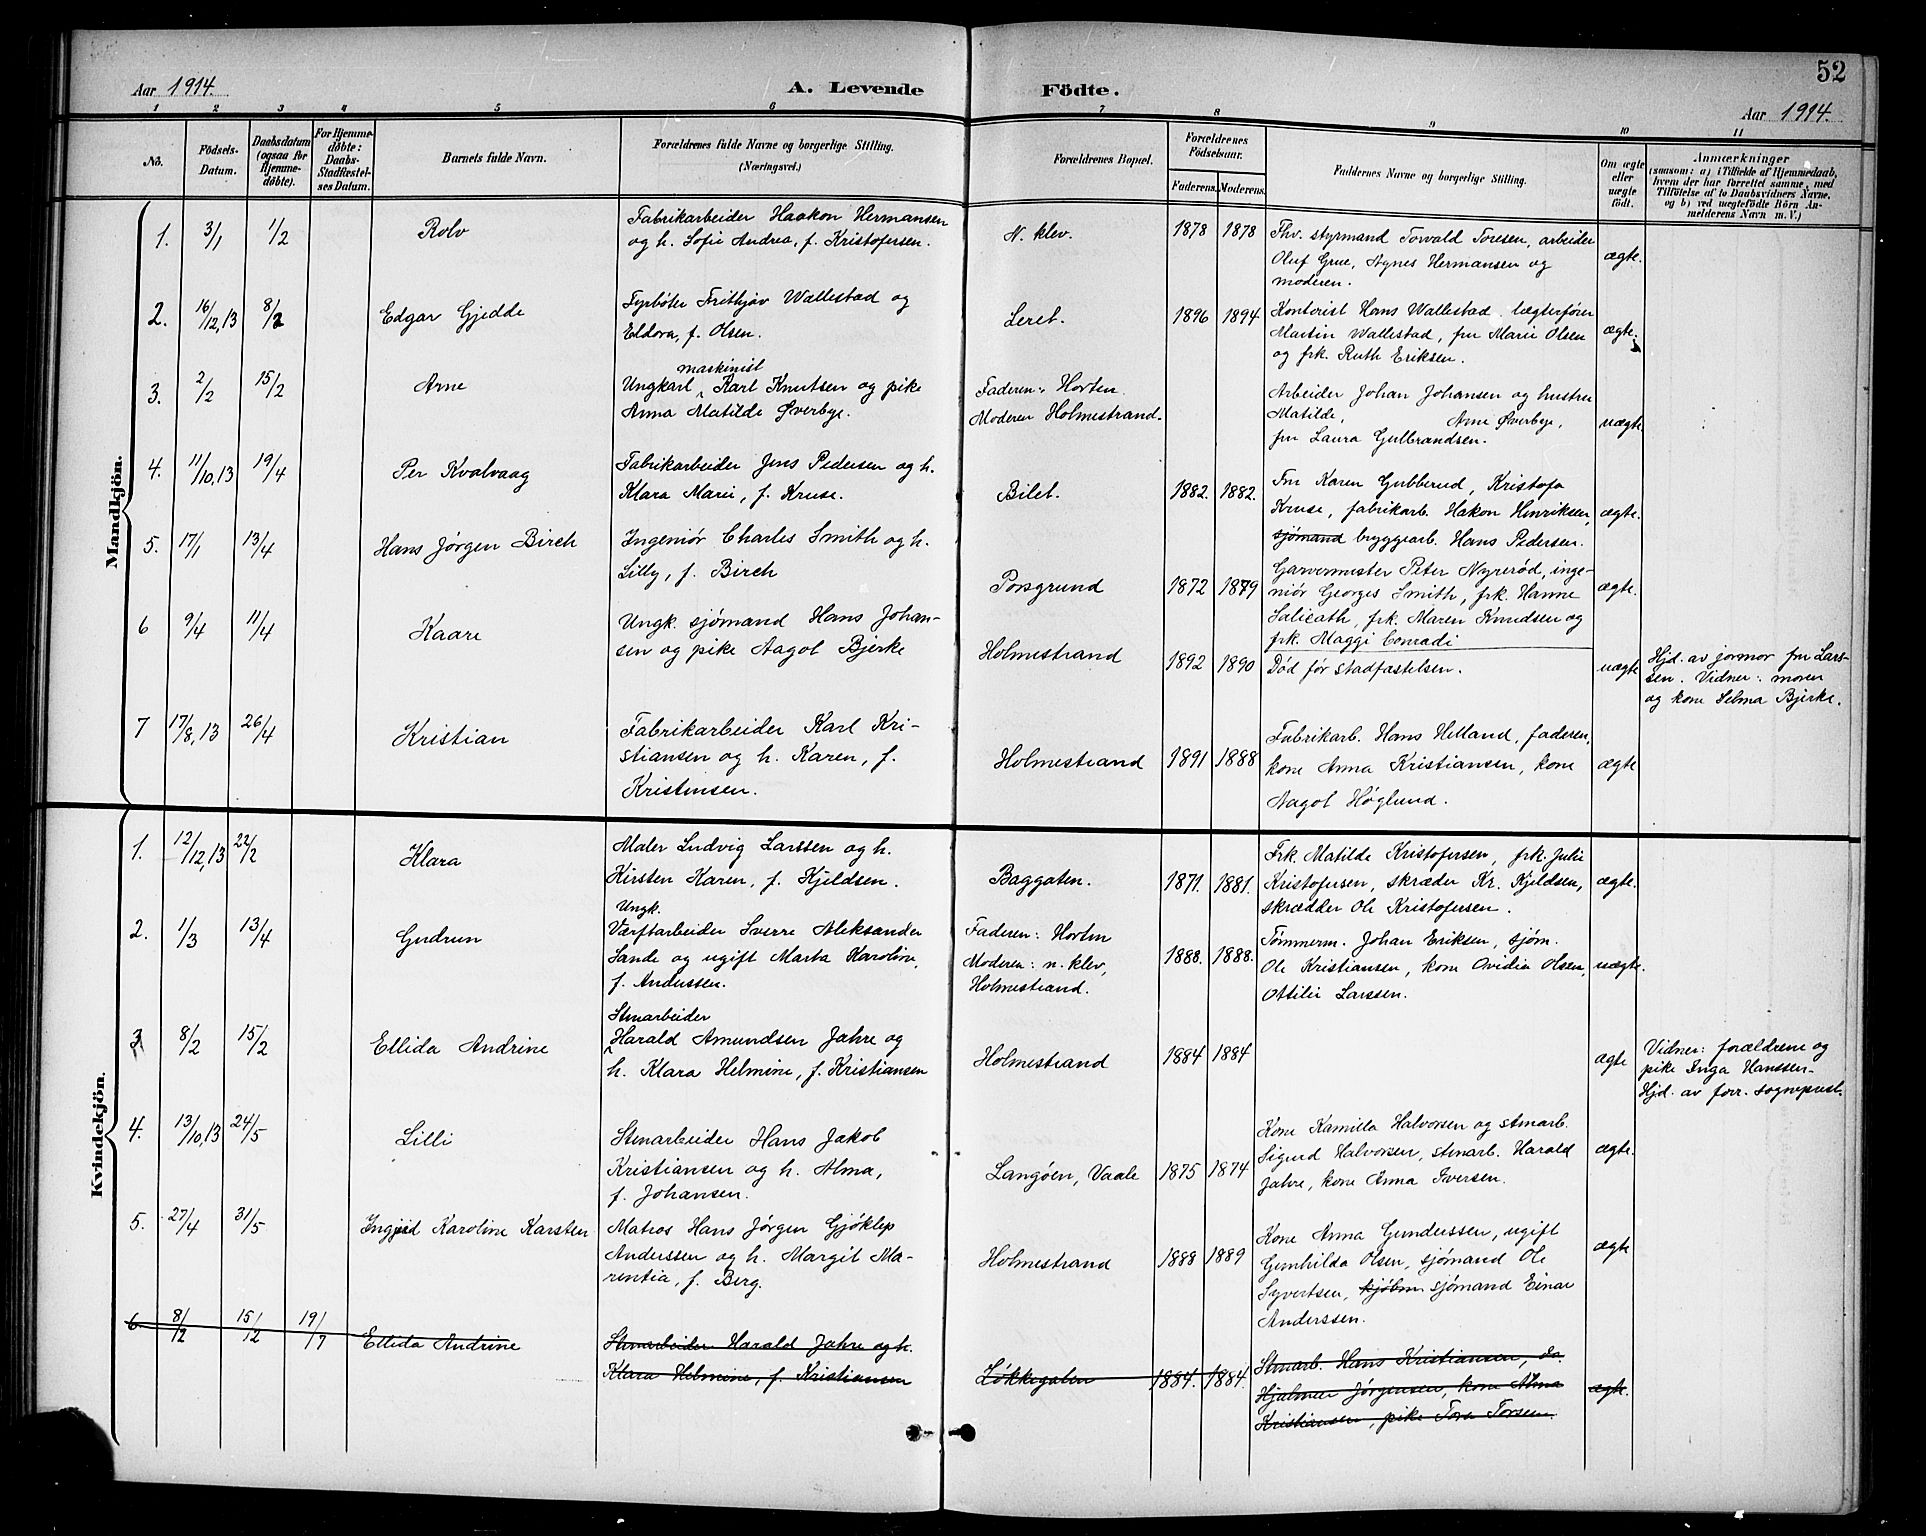 52
Aar 1914.
A. Levende Födte.
Aar 1914.
1 2 3 4 5 6 7 8 9 10 11
No.
Födsels-
Datum.
Daabsdatum
(ogsaa for
Hjemme-
døbte).
For Hjemme-
døbte:
Daabs-
Stadfæstel-
ses Datum.
Barnets fulde Navn.
Forældrenes fulde Navne og borgerlige Stilling.
(Næringsvei.)
Forældrenes Bopæl.
Forældrenes
Födselsaar.
Faderens. Moderens.
Faddernes Navne og borgerlige Stilling.
Om ægte
eller
uægte
födt.
Anmærkninger
(saasom: a) i Tilfælde af Hjemmedaab,
hvem der har forrettet samme, med
Tilföielse af to Daabsvidners Navne,
og b) ved uægtefödte Börn An-
melderens Navn m. V.)
Mandkjön.
1. 3/1 1/2 Rolv
Fabrikarbeider Haakon Hermansen
og h. Sofie Andrea, f. Kristofersen.
N. klev. 1878 1878
Thv. styrmand Torvald Toresen, arbeider
Oluf Grue, Agnes Hermansen og
moderen.
ægte.
2. 16/12,13 8/2 Edgar Gjedde
Fyrbøter Frithjov Wallestad og
Eldora, f. Olsen.
Leret. 1896 1894
Kontorist Hans Wallestad, lægterfører
Martin Wallestad, fru Marie Olsen
og frk. Ruth Eriksen.
ægte.
3. 2/2 15/2 Arne
maskinist
Ungkarl Karl Knutsen og pike
Anna Matilde Øverbye.
Faderen: Horten
Moderen Holmestrand.
Arbeider Johan Johansen og hustru
Matilde, Arne Øverbye,
fru Laura Gulbrandsen.
uægte.
4. 11/10,13 19/4 Per Kvalvaag
Fabrikarbeider Jens Pedersen og h.
Klara Marie, f. Kruse.
Bilet. 1882. 1882.
Fru Karen Gubberud, Kristofa
Kruse, fabrikarb. Hakon Henriksen,
sjømand bryggearb. Hans Pedersen.
ægte.
5. 17/1 13/4 Hans Jørgen Birch
Ingeniør Charles Smith og h.
Lilly, f. Birch
Porsgrund 1872 1879
Garvermester Peter Nyrerød, inge-
niør Georges Smith, frk. Hanne
Salicath, frk. Maren Knudsen og
frk. Maggi Conradi
ægte.
6 9/4 11/4 Kaare
Ungk. sjømand Hans Johan-
sen og pike Aagot Bjerke
Holmestrand 1892 1890
Død før stadfæstelsen.
uægte
Hjd. av jormor fru Lars-
sen. Vidner: moren
og kone Selma Bjerke.
7 17/8,13 26/4 Kristian
Fabrikarbeider Karl Kri-
stiansen og h. Karen, f.
Kristensen.
Holmestrand 1891 1888
Fabrikarb. Hans Helland, faderen,
kone Anna Kristiansen, kone
Aagot Høglund.
ægte
Kvindekjön.
1. 12/12,13 22/2 Klara
Maler Ludvig Larssen og h.
Kirsten Karen, f. Kjeldsen.
Baggaten. 1871. 1881.
Frk. Matilde Kristofersen, frk. Julie
Kristofersen, skræder Kr. Kjeldsen,
skrædder Ole Kristofersen.
ægte.
2. 1/3 13/4 Gudrun
Ungk.
Værftarbeider Sverre Aleksander
Sande og ugift Marta Karoline,
f. Anderssen.
Faderen: Horten
Moderen: n. klev,
Holmestrand.
1888. 1888.
Tømmerm. Johan Eriksen, sjøm.
Ole Kristiansen, kone Ovidia Olsen,
Ottilie Larssen.
uægte.
3 8/2 15/2 Ellida Andrine
Stenarbeider
Harald Amundsen Jahre og
h. Klara Helmine, f. Kristiansen
Holmestrand 1884 1884
ægte
Vidner: forældrene og
pike Inga Hanssen.
Hjd. av forr. sogneprest.
4. 13/10,13 24/5 Lilli
Stenarbeider Hans Jakob
Kristiansen og h. Alma,
f. Johansen.
Langøen, Vaale 1875 1874
Kone Kamilla Halvorsen og stenarb.
Sigurd Halvorsen, stenarb. Harald
Jahre, kone Anna Iversen.
ægte.
5. 27/4 31/5 Ingjerd Karoline Karsten
Matros Hans Jørgen Gjøklep
Anderssen og h. Margit Ma-
rentia, f. Berg.
Holmestrand 1888 1889
Kone Anna Gunderssen, ugift
Gunhilda Olsen, sjømand Ole
Syvertsen, kjøbm sjømand Einar
Anderssen.
ægte
6. 8/12 15/12 19/7 Ellida Andrine
Stenarbeider Harald Jahre og h.
Klara Helmine, f. Kristiansen
Løkkegaten 1884. 1884.
Stenarb. Hans Kristiansen, do.
Hjalmar Jørgensen, kone Alma
Kristiansen, pike Tora Torsen.
ægte.